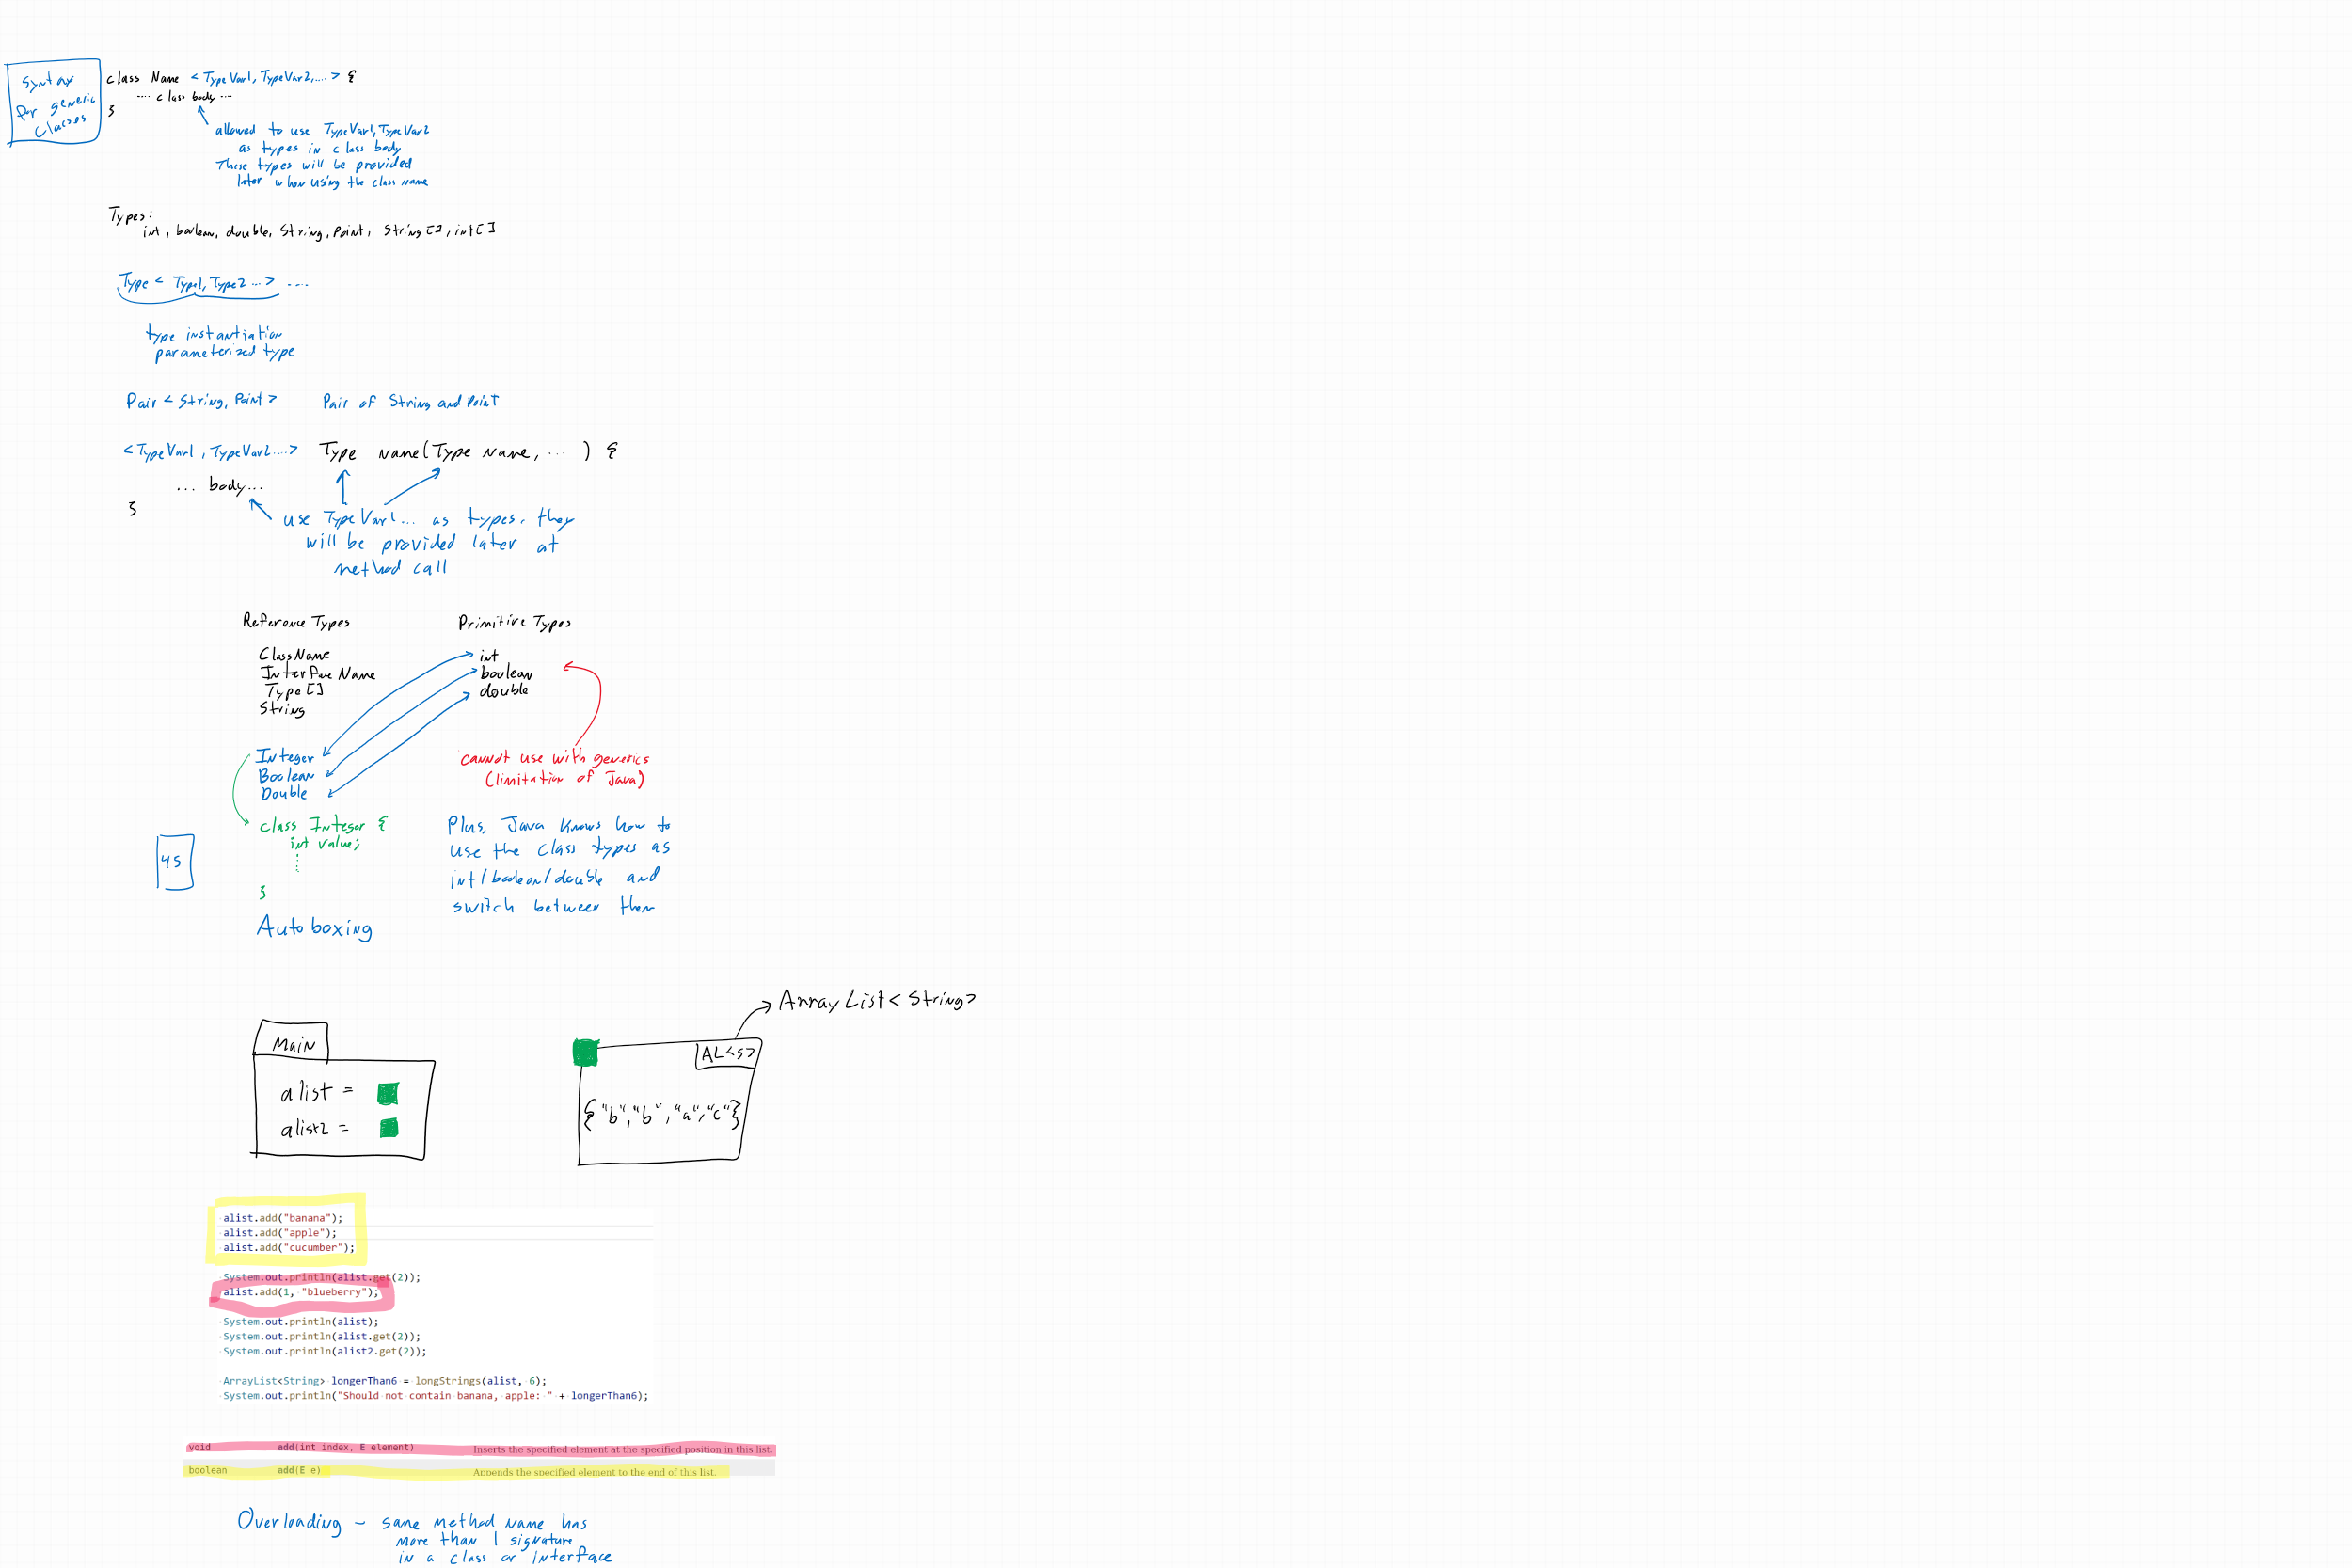 syntax
for generic
classes
class Name <TypeVar1, TypeVar2,....> {
.... class body ....
}
allowed to use TypeVar1, TypeVar2
as types in class body
These types will be provided
later when using the class name
Types:
int, boolean, double, String, Point, String[], int[]
Type < Type1, Type2 ...> ....
type instantiation
parameterized type
Pair < String, Point > Pair of String and Point
<TypeVar1, TypeVar2....> Type name(Type name, ... ) {
... body...
}
use TypeVar1... as types, they
will be provided later at
method call
Reference Types Primitive Types
ClassName int
InterfaceName boolean
Type[] double
String
Integer cannot use with generics
Boolean (limitation of Java)
Double
class Integer { Plus, Java knows how to
int value; use the class types as
45
⋮ int/boolean/double and
} switch between them
Autoboxing
ArrayList<String>
Main AL<S>
alist =
alist2 =
{"b","b","a","c"}
alist.add("banana");
alist.add("apple");
alist.add("cucumber");
System.out.println(alist.get(2));
alist.add(1, "blueberry");
System.out.println(alist);
System.out.println(alist.get(2));
System.out.println(alist2.get(2));
ArrayList<String> longerThan6 = longStrings(alist, 6);
System.out.println("Should not contain banana, apple: " + longerThan6);
void add(int index, E element) Inserts the specified element at the specified position in this list.
boolean add(E e) Appends the specified element to the end of this list.
Overloading - same method name has
more than 1 signature
in a class or interface